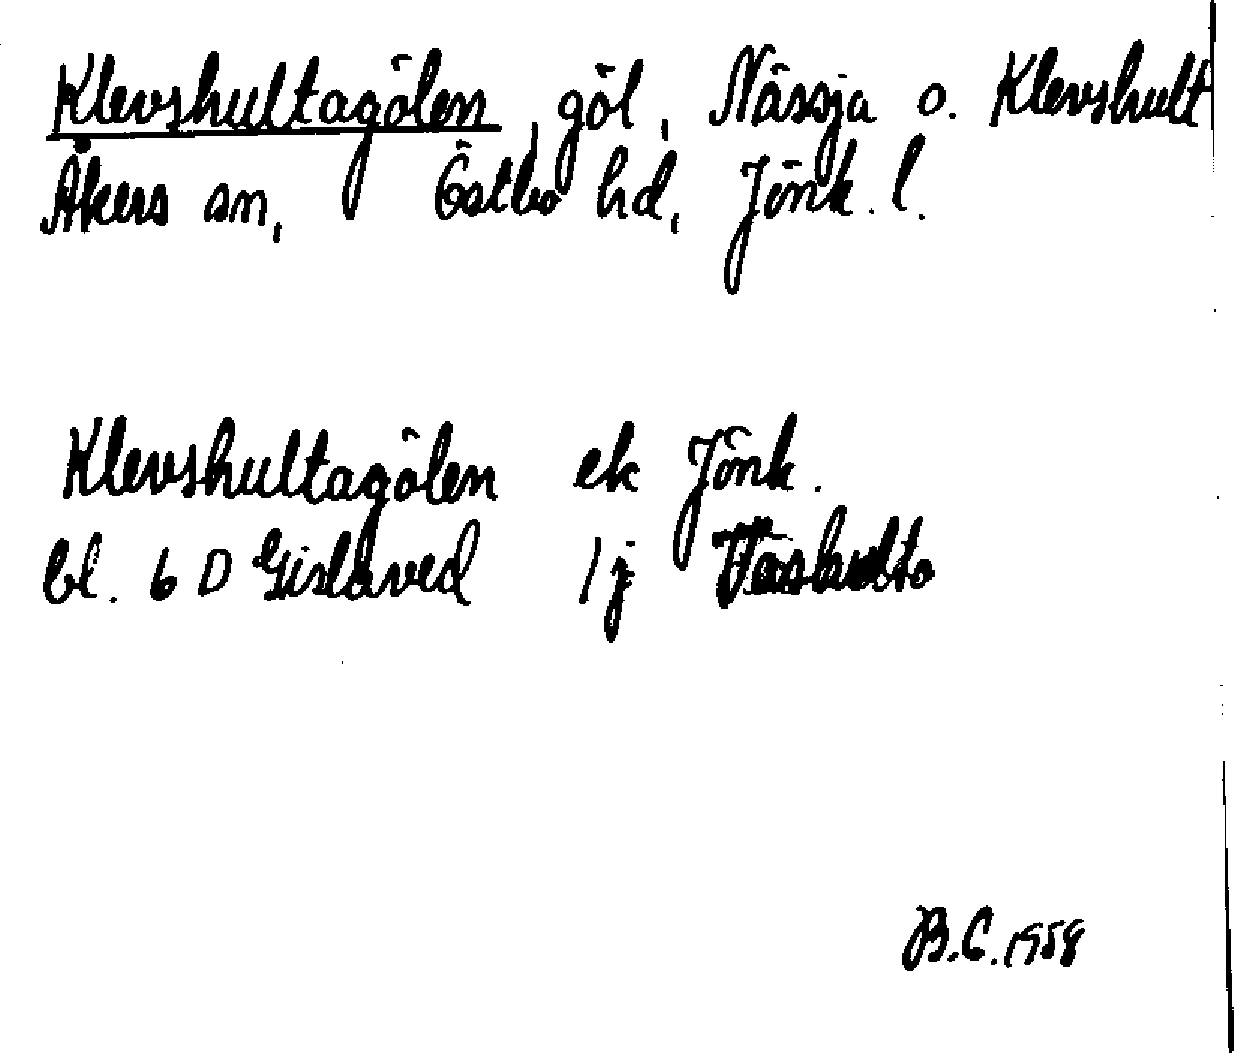 Klevshultagölen, göl, Nässja o. Klevshult
Åkers sn, Östbo hd, Jönk. l.
Klevshultagölen ek Jönk.
bl. 6 D Gislaved 1j
B.C. 1958